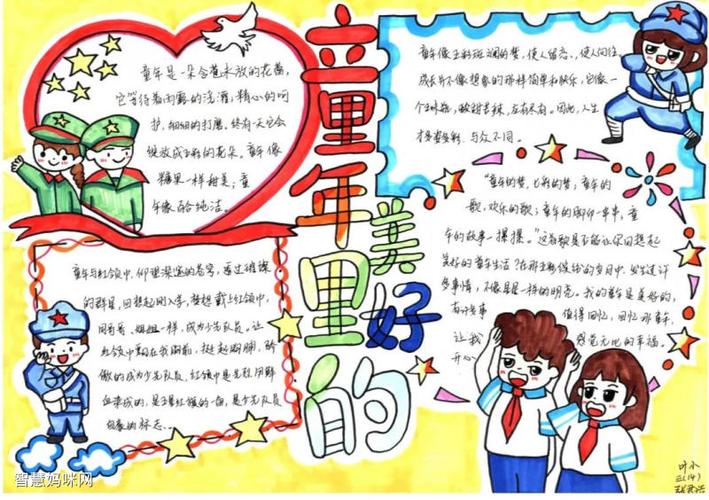 童年里的
美好
童年是一朵含苞未放的花蕾，
它等待着雨露的浇灌，精心的呵
护，细细的打磨，终有一天它会
绽放成五彩的花朵。童年像
糖果一样甜美；童
年像百合纯洁。
童年像五彩斑斓的梦，使人留恋，使人向往。
成长并不像想象的那样简单和快乐，它像一
个，酸甜苦辣，应有尽有。因此，人生
才多姿多彩，与众不同。
"童年的梦，七彩的梦；童年的
歌，欢乐的歌；童年的脚印一串串，童
年的故事一摞摞。"这首歌是否能让你回想起
美好的童年生活？在那五彩缤纷的岁月中，发生过许
多事情，不像星星一样的明亮。我的童年是美好的，
有许多事
值得回忆，回忆那童年，
让我
感觉无比的幸福。
开心
童年与红领巾，仰望深邃的苍穹，透过璀璨
的群星，回想起刚入学，梦想戴上红领巾，
同哥哥、姐姐一样，成为少先队员。让
红领巾飘在我胸前，挺起胸脯，骄
傲的成为少先队员，红领巾是先烈用鲜
血染成的，是五星红旗的一角，是少先队员
的标志...
叶小
三(14)
智慧妈咪网